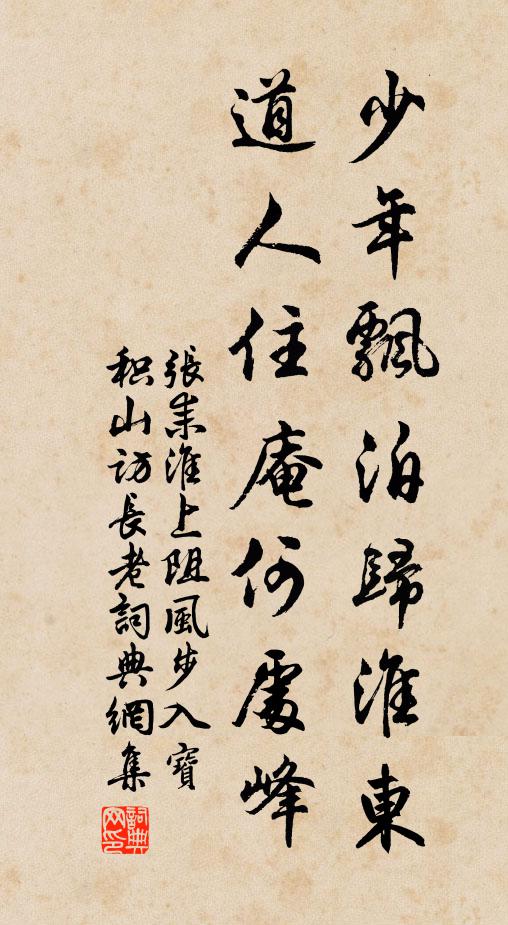 少年飄泊歸淮東
道人住庵何處峰
張耒淮上阻風步入寶
积山访長老詞典網集
詞典网印